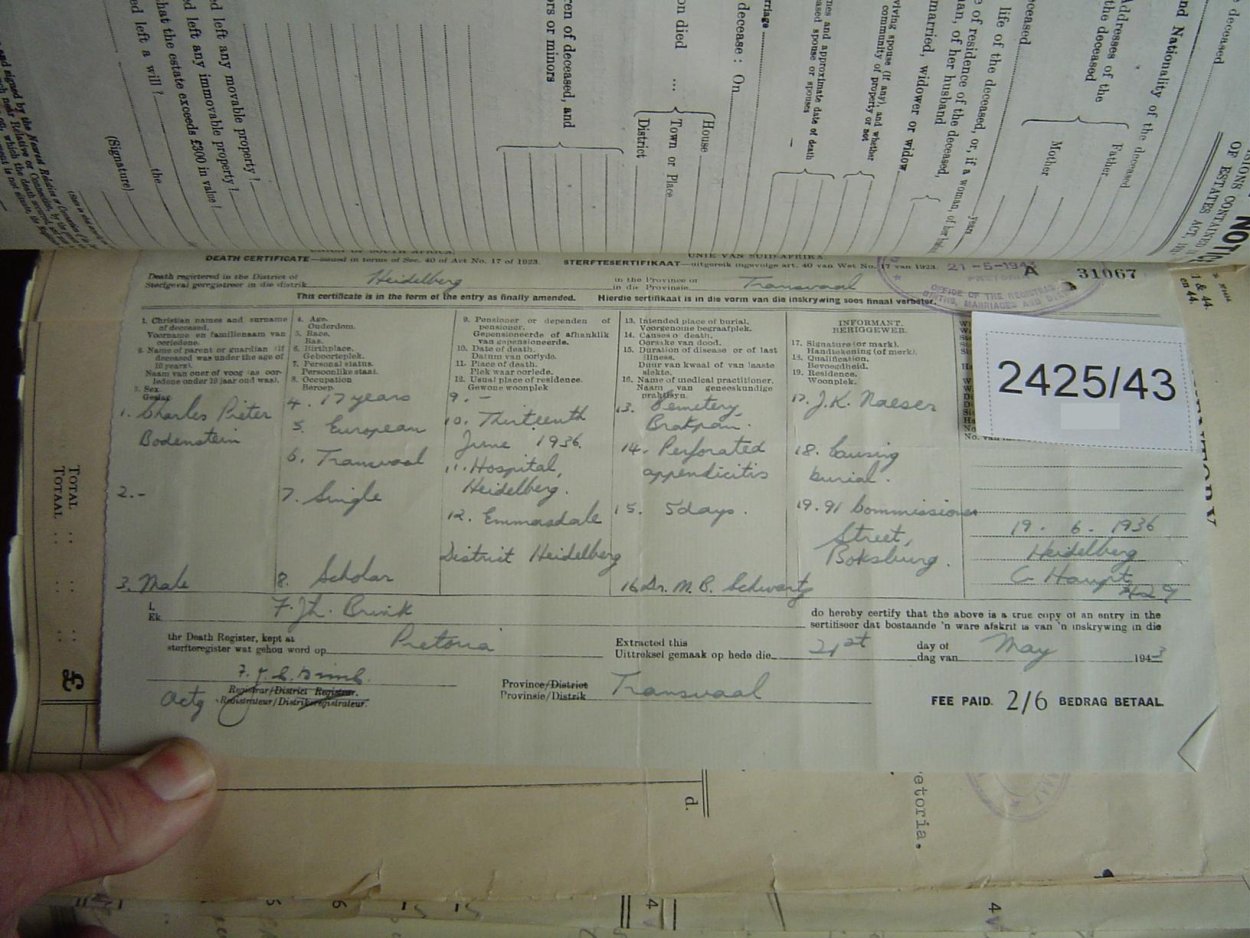 ed left a will?
that the estate exceeds £300 in value?
d left any immovable property?
d left any movable property?
(Signature)
the
ren of deceased, and
rs or minors
on died ...
House
Town or Place
District
decease: On
married, widower or widow
life of the deceased
Father
Mother
Addresses of
the deceased
nd Nationality of the deceased
DEATH CERTIFICATE—issued in terms of Sec. 40 of Act No. 17 of 1923. STERFTESERTIFIKAAT—uitgereik ingevolge art. 40 van Wet No. 17 van 1923.
UNIE VAN SUID-AFRIKA
A 31067
Death registered in the District of Heidelberg in the Province of Transvaal
Sterfgeval geregistreer in die distrik in die Provinsie
This certificate is in the form of the entry as finally amended. Hierdie sertifikaat is in die vorm van die inskrywing soos finaal verbeter.
1. Christian names and surname
of deceased.
Voorname en familienaam van
oorledene.
2. Name of parent or guardian (if
deceased was under the age of
Naam van ouer of voog (as oor-
3. Sex
Geslag
4. Age.
Ouderdom.
5. Race.
Ras.
6. Birthplace.
Geboorteplek.
7. Personal status.
Persoonlike staat.
8. Occupation
Beroep.
9. Pensioner or dependent of
pensioner.
Gepensioneerde of afhanklik
van gepensioneerde.
10. Date of death.
Datum van oorlyde.
11. Place of death.
Plek waar oorlede.
12. Usual place of residence.
Gewone woonplek
13. Intended place of burial.
Voorgenome begraafplek.
14. Causes of death.
Oorsake van dood.
15. Duration of disease or of last
illness.
Duur van kwaal of van laaste
siekte.
16. Name of medical practitioner.
Naam van geneeskundige
praktisyn.
INFORMANT.
BERIGGEWER.
17. Signature (or mark).
Handtekening (of merk).
18. Qualification.
Bevoegdheid.
19. Residence.
Woonplek.
1. Charles Pieter
Bodenstein
2. -
3. Male
4. 17 years
5. European
6. Transvaal
7. Single
8. Scholar
9. -
10. Thirteenth
June 1936
11. Hospital,
Heidelberg.
12. Emmasdale
District Heidelberg
13. Cemetery
Brakpan.
14. Perforated
appendicitis
15. 5 days.
16. Dr. M. B. Schwartz
17. J.K. Naeser
18. Causing
burial.
19. 91 Commissioner
Street,
Boksburg.
2425/43
19. 6. 1936
Heidelberg
C Haupt
I, F. Brink do hereby certify that the above is a true copy of an entry in the
Ek, sertifiseer dat bostaande 'n ware afskrif is van 'n inskrywing in die
the Death Register, kept at Pretoria Extracted this 21st day of May 1943
sterfteregister wat gehou word op Uittreksel gemaak op hede die dag van
Actg Registrar/District Registrar.
Registrateur/Distriksregistrateur.
Province/District Transvaal
Provinsie/Distrik
FEE PAID. 2/6 BEDRAG BETAAL.
TOTAL
TOTAAL
£
d.
etoria.